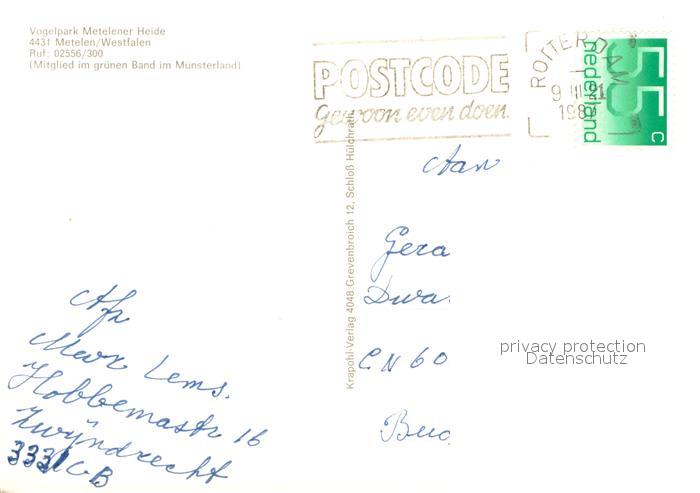 Vogelpark Metelener Heide
4431 Metelen/Westfalen
Ruf: 02556/300
(Mitglied im grünen Band im Münsterland)
POSTCODE
Gewoon even doen.
ROTTERDAM
9 III
198
55 c
nederland
Krapohl-Verlag 4048 Grevenbroich 12, Schloß Hülchrath
Aan
Gera
Dwa
CN 60
privacy protection
Datenschutz
Afz
Lems.
Hobbemastr 16
Zwijndrecht
3331 CB